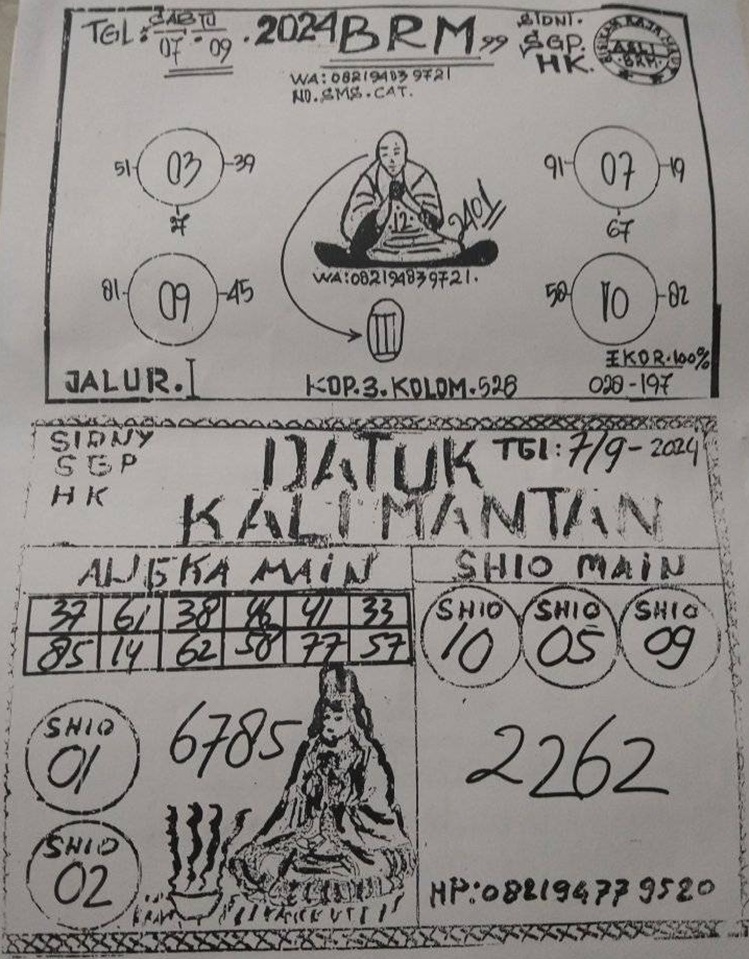 TGL: SABTU 07-09.2024 BRM 99
SIDNI.
SGP.
HK.
ASLI
BRM
WA:082194839721
NO.SMS.CAT.
51 03 39
27
91 07 19
67
12
2401
WA:082194839721.
81 09 45
58 10 82
EKOR.100%
JALUR.I
KOP.3.KOLOM.528
028-197
SIDNY
SGP
HK
DATUK
TGl:7/9-2024
KALIMANTAN
ANGKA MAIN
SHIO MAIN
37 61 38 46 41 33
85 14 62 58 77 57
SHIO 10
SHIO 05
SHIO 09
SHIO 01
6785
2262
SHIO 02
HP:082194779520